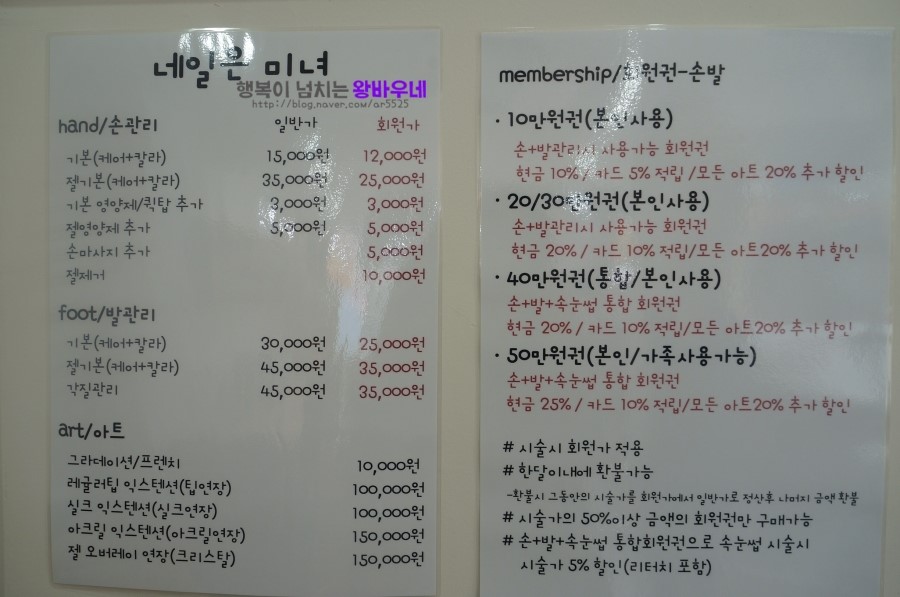 네일은 미녀
행복이 넘치는 왕바우네
http://blog.naver.com/ar5525
hand/손관리 일반가 회원가
기본(케어+칼라) 15,000원 12,000원
젤기본(케어+칼라) 35,000원 25,000원
기본 영양제/퀵탑 추가 3,000원 3,000원
젤영양제 추가 5,000원 5,000원
손마사지 추가 5,000원
젤제거 10,000원
foot/발관리
기본(케어+칼라) 30,000원 25,000원
젤기본(케어+칼라) 45,000원 35,000원
각질관리 45,000원 35,000원
art/아트
그라데이션/프렌치 10,000원
레귤러팁 익스텐션(팁연장) 100,000원
실크 익스텐션(실크연장) 100,000원
아크릴 익스텐션(아크릴연장) 150,000원
젤 오버레이 연장(크리스탈) 150,000원
membership/회원권-손발
· 10만원권(본인사용)
손+발관리시 사용가능 회원권
현금 10% / 카드 5% 적립/모든 아트 20% 추가 할인
· 20/30만원권(본인사용)
손+발관리시 사용가능 회원권
현금 20% / 카드 10% 적립/모든 아트20% 추가 할인
· 40만원권(통합/본인사용)
손+발+속눈썹 통합 회원권
현금 20% / 카드 10% 적립/모든 아트20% 추가 할인
· 50만원권(본인/가족사용가능)
손+발+속눈썹 통합 회원권
현금 25% / 카드 10% 적립/모든 아트20% 추가 할인
# 시술시 회원가 적용
# 한달이내에 환불가능
-환불시 그동안의 시술가를 회원가에서 일반가로 정산후 나머지 금액 환불
# 시술가의 50%이상 금액의 회원권만 구매가능
# 손+발+속눈썹 통합회원권으로 속눈썹 시술시
시술가 5% 할인(리터치 포함)